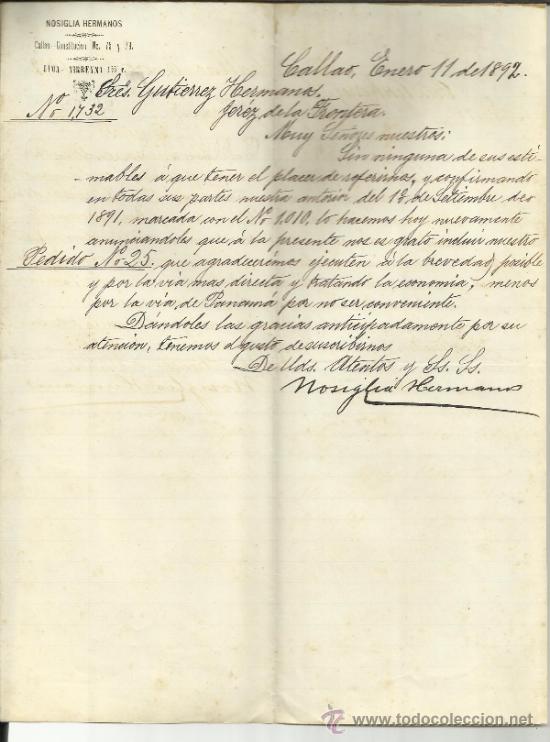 NOSIGLIA HERMANOS
Callao - Constitucion No.
LIMA
Callao, Enero 11 de 1892.
Sres. Gutierrez Hermanos.
No 1,732
Jeréz de la Frontera.
Muy Señores nuestros:
Sin ninguna de sus esti-
-mables á que tener el placer de referirnos, y confirmando
en todas sus partes nuestra anterior del 12 de Setiembre de
1891, marcada con el No 1.010, lo hacemos hoy nuevamente
anunciandoles que á la presente nos es grato incluir nuestro
Pedido No 25. que agradecerémos ejecuten á la brevedad posible
y por la via mas directa y tratando la economia, menos
por la via de Panamá por no ser conveniente.
Dándoles las gracias anticipadamente por su
atencion, tenemos el gusto de suscribirnos
De Uds. Atentos y Ss. Ss.
Nosiglia Hermanos
www.todocoleccion.net